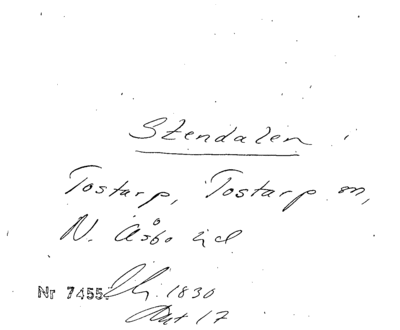 Stendalen
Tostarp, Tostarp sn,
N. Åsbo hd
Nr 7455. 1830
Akt 17